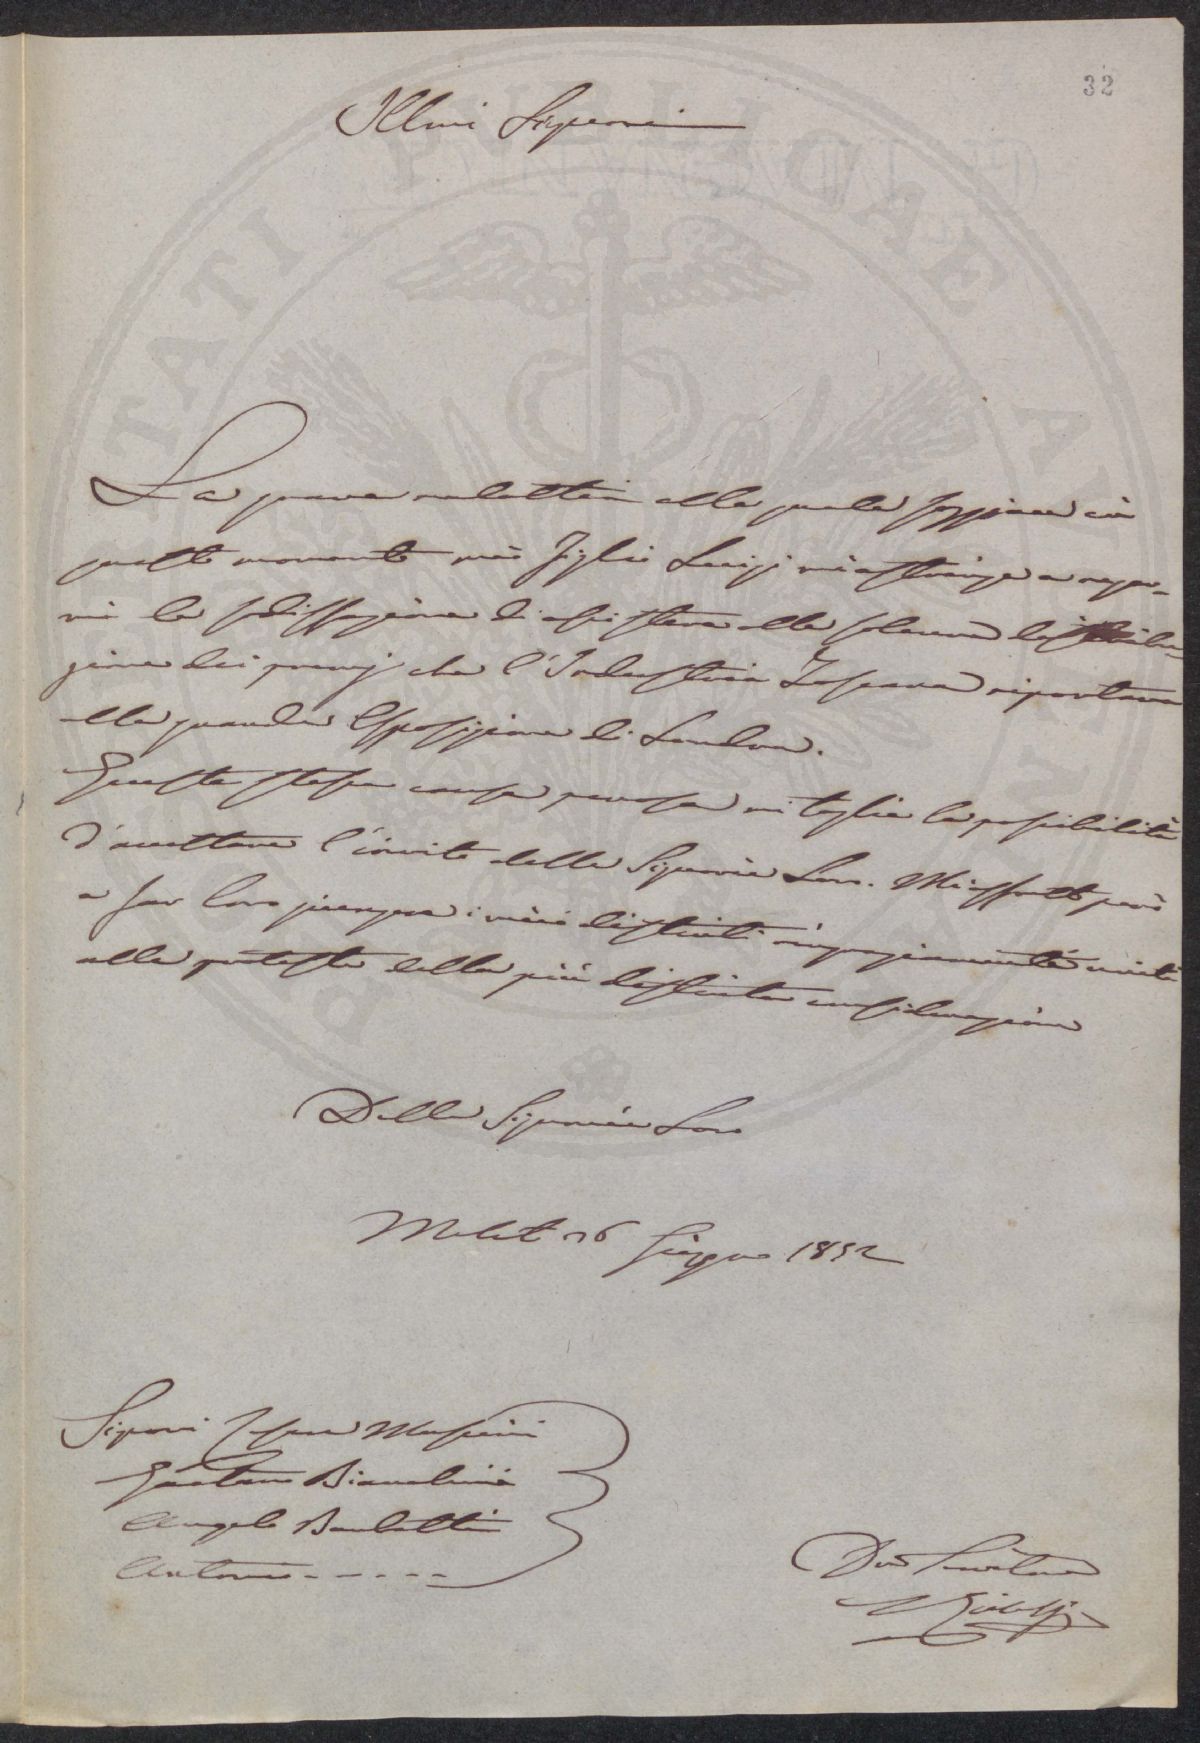 32
Illmi Signori
La grave malattia alla quale soggiace in
questo momento mio Figlio Luigi mi astringe a negar-
mi la sodisfazione di assistere alla solenne distribu-
zione dei premj che l'Industria Toscana riportava
alla grande Esposizione di Londra.
Questa stessa causa penosa mi toglie la possibilità
d'accettare l'invito delle Signorie Loro. Mi affretto però
a far loro giungere i miei distinti ringraziamenti uniti
alle proteste della più distinta considerazione
Delle Signorie Loro
Meleto 26 Giugno 1852
Signori Mascini
Gaetano Bianchini
Angelo Barlotti
Antonio ------
Dev Servitore
Ridolfi
PVBLICAE